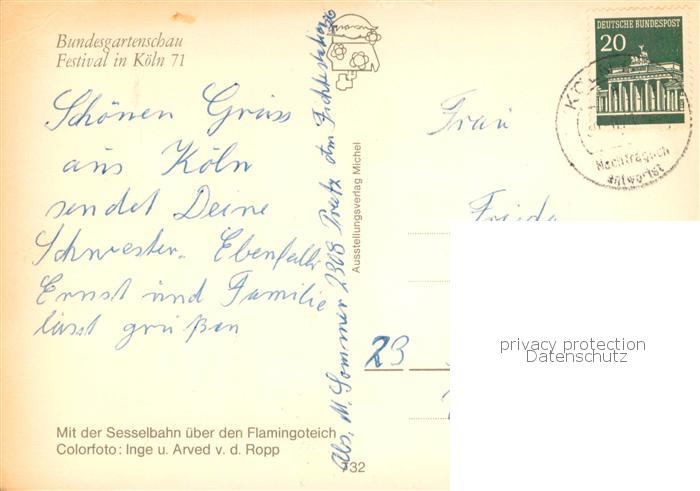 Bundesgartenschau
Festival in Köln 71
Schönen Gruss
aus Köln
sendet Deine
Schwester. Ebenfalls
Ernst und Familie
lässt grüßen
Mit der Sesselbahn über den Flamingoteich
Colorfoto: Inge u. Arved v. d. Ropp
Abs. M. Sommer 2308 Preetz Am
Ausstellungsverlag Michel
132
DEUTSCHE BUNDESPOST
20
KÖLN
Nachträglich
entwertet
Frau
Frieda
23
privacy protection
Datenschutz